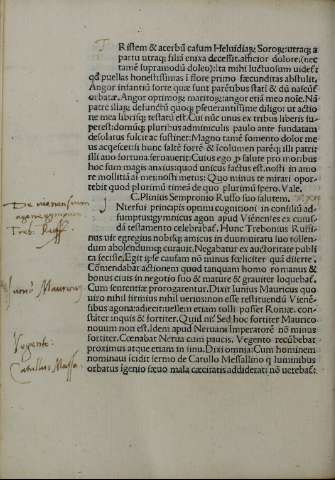 Ristem & acerbū casum Heluidiaꝝ Soroꝝ: utraqꝫ a
partu utraqꝫ filiā enixa decessit. afficior dolore. (nec
tamē supramodū doleo): Ita mihi luctuosum uidet̄
qđ puellas honestissimas ī flore primo fœcunditas abstulit.
Angor infantiū sorte quæ sunt parētibus statī & dū nascūt̄
orbatæ. Angor optimoꝝ maritoꝝ: angor etiā meo noīe. Nā
patrē illaꝝ defunctū quoqꝫ perseuerantissime diligo: ut actio
ne mea librisqꝫ testatū est. Cui nūc unus ex tribus liberis su-
perest: domūqꝫ pluribus adminiculis paulo ante fundatam
desolatus fulcit ac sustinet: Magno tamē fomento dolor me
us acquiescet: si hunc saltē fortē & īcolumen parēqꝫ illi patri:
illi auo fortuna seruauerit: Cuius ego ꝓ salute pro moribus
hoc sum magis anxius: quod unicus factus est. nosti in amo
re mollitiā mei: nosti metus: Quo minus te mirari opor-
tebit quod plurimū timeā de quo plurimū spero. Vale.
C. Plinius Sempronio Rufo suo salutem.
Nterfui principis optimi cognitioni in consiliū ad-
sumptus: gymnicus agon apud Viēnēses ex cuius-
dā testamento celebrabat̄. Hunc Trebonus Rufi-
nus uir egregius nobisqꝫ amicus in duumuiratu suo tollen-
dum abolendumqꝫ curauit. Negabatur ex auctoritate publi
ca fecisse. Egit ip̄e causam nō minus fœliciter quā diserte.
Cōmendabat actionem quod tanquam homo romanus &
bonus ciuis in negotio suo & mature & grauiter loquebat̄.
Cum sententiæ prorogarentur. Dixit Iunius Mauricus quo
uiro nihil firmius nihil uerius: non esse restituendū Viēnē-
sibus agona: adiecit uellem etiam tolli posset Romæ. con-
stāter inquis & fortiter. Quid ni? Sed hoc fortiter Maurico
nouum non est. Idem apud Neruam Imperatorē nō minus
fortiter. Cœnabat Nerua cum paucis. Vegento recūbebat
proximus atque etiam in sinu. Dixi omnia: Cum hominem
nominaui icidit sermo de Catullo Messallino q luminibus
orbatus īgenio sæuo mala cæcitatis addiderat: nō uerebat̄:
De viennensium
agone gymnico
Treb. Ruff.
Iunius Mauricus
Vegento:
Catullus Messa.